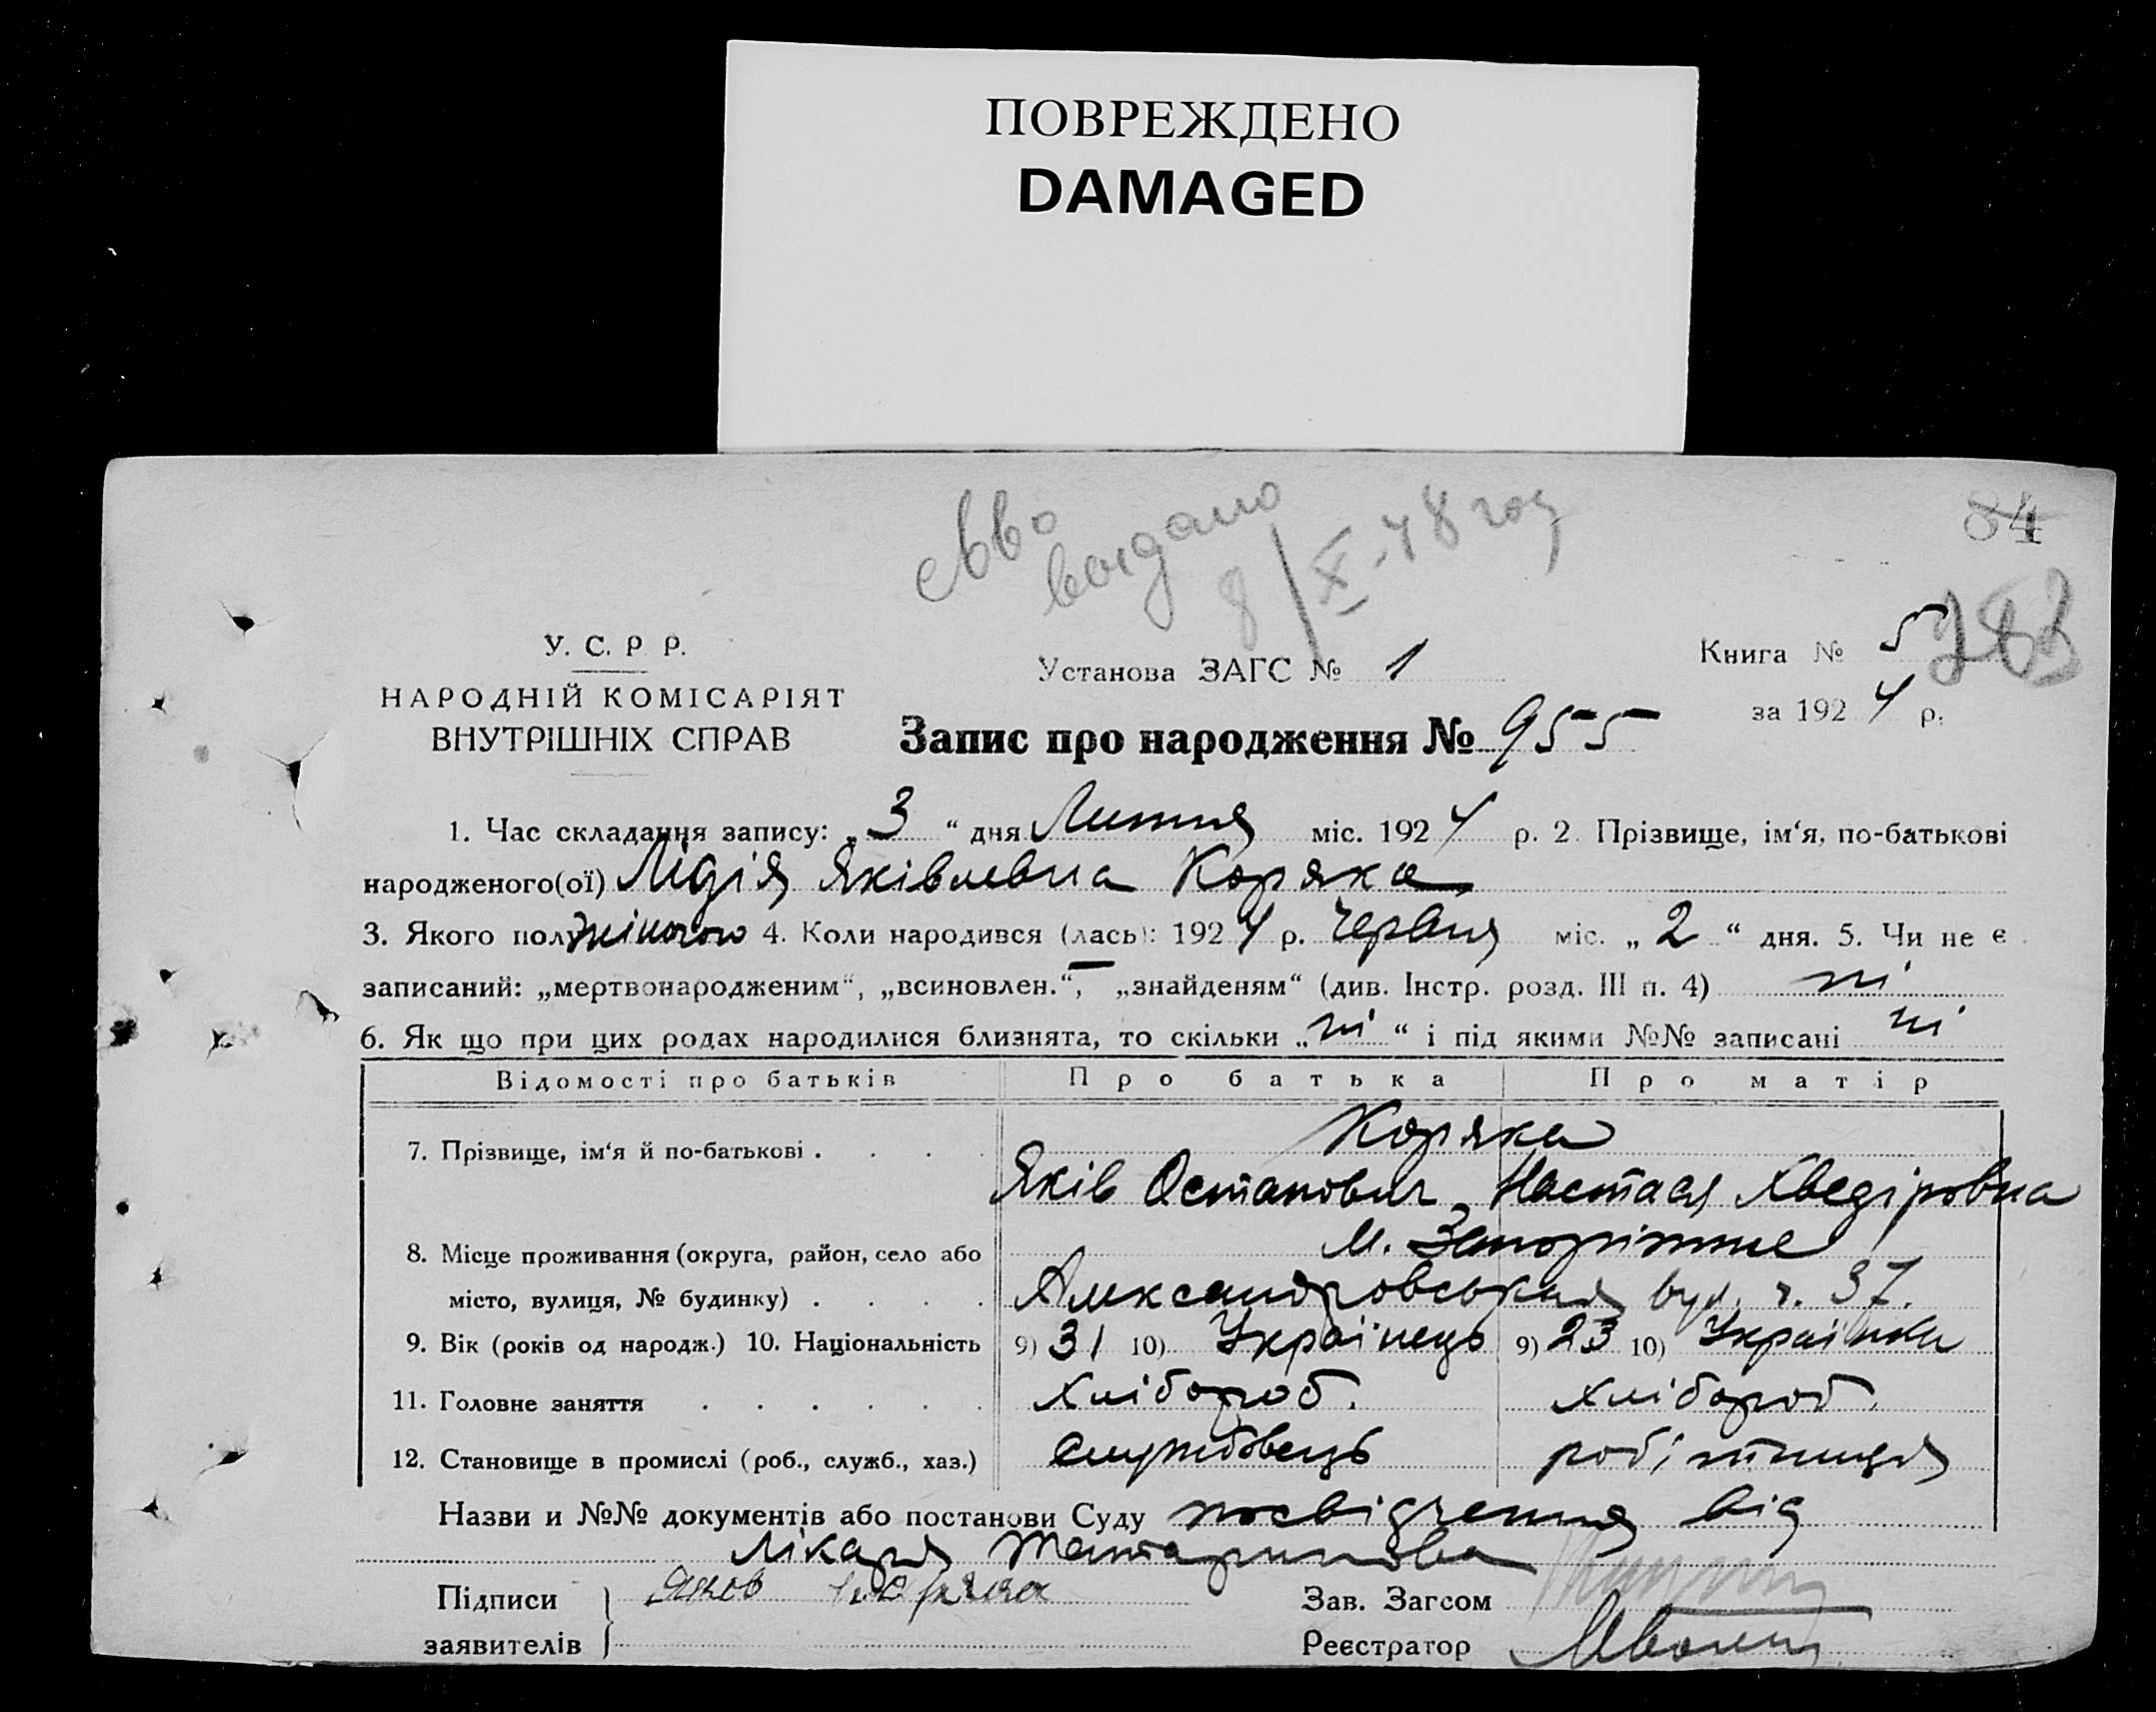 ПОВРЕЖДЕНО
DAMAGED
84
выдано
8/X-48 год
283
У. С. Р Р.
НАРОДНІЙ КОМІСАРІЯТ
ВНУТРІШНІХ СПРАВ
Установа ЗАГС № 1
Книга № 5
за 1924 р.
Запис про народження № 955
1. Час складання запису: „3“ дня Липня міс. 1924 р. 2 Прізвище, ім‘я, по-батькові
народженого(ої) Лідія Яківлевна Коряка
3. Якого полу жіночого 4. Коли народився (лась): 1924 р. Червня міс. „2“ дня. 5. Чи не є
записаний: „мертвонародженим“, „всиновлен.“, „знайденям“ (див. Інстр. розд. III п. 4) ні
6. Як що при цих родах народилися близнята, то скільки „ні“ і під якими №№ записані ні
Відомості про батьків Про батька Про матір
7. Прізвище, ім‘я й по-батькові . . . . Коряка
Яків Остапович Настася Хведіровна
8. Місце проживання (округа, район, село або м. Запоріжже
місто, вулиця, № будинку) . . . . Александровськая вул. ч. 37.
9. Вік (років од народж.) 10. Національність 9) 31 10) Українець 9) 23 10) Українка
11. Головне заняття . . . . . . Хлібороб. хлібороб.
12. Становище в промислі (роб., служб., хаз.) службовець робітниця
Назви и №№ документів або постанови Суду посвідчення від
лікаря
Підписи Яков Коряка Зав. Загсом
заявителів Реєстратор